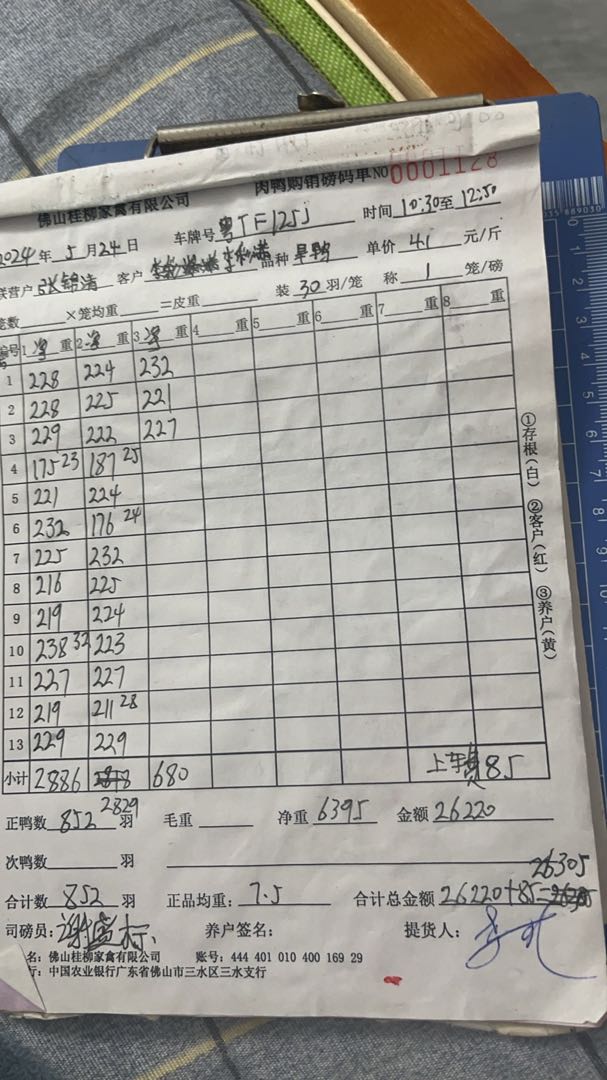 佛山桂柳家禽有限公司 肉鸭购销磅码单 NO 0001128
2024年 5月24日 车牌号 粤TF125J 时间 10:30至 12:50
联营户 张锦清 客户 品种 单价 4.1 元/斤
笼数 ×笼均重 =皮重 装 30 羽/笼 称 1 笼/磅
编号 1 重 2 重 3 重 4 重 5 重 6 重 7 重 8 重
1 228 224 232
2 228 225 221
3 229 222 227
4 175 23 187 25
5 221 224
6 232 176 24
7 225 232
8 216 225
9 219 224
10 238 32 223
11 227 227
12 219 211 28
13 229 229
小计 2886 2829 680 上车费85
正鸭数 852 羽 毛重 净重 6395 金额 26220
次鸭数 羽
合计数 852 羽 正品均重: 7.5 合计总金额 26220+85= 26305
司磅员: 养户签名: 提货人:
名: 佛山桂柳家禽有限公司 账号: 444 401 010 400 169 29
行: 中国农业银行广东省佛山市三水区三水支行
①存根(白) ②客户(红) ③养户(黄)